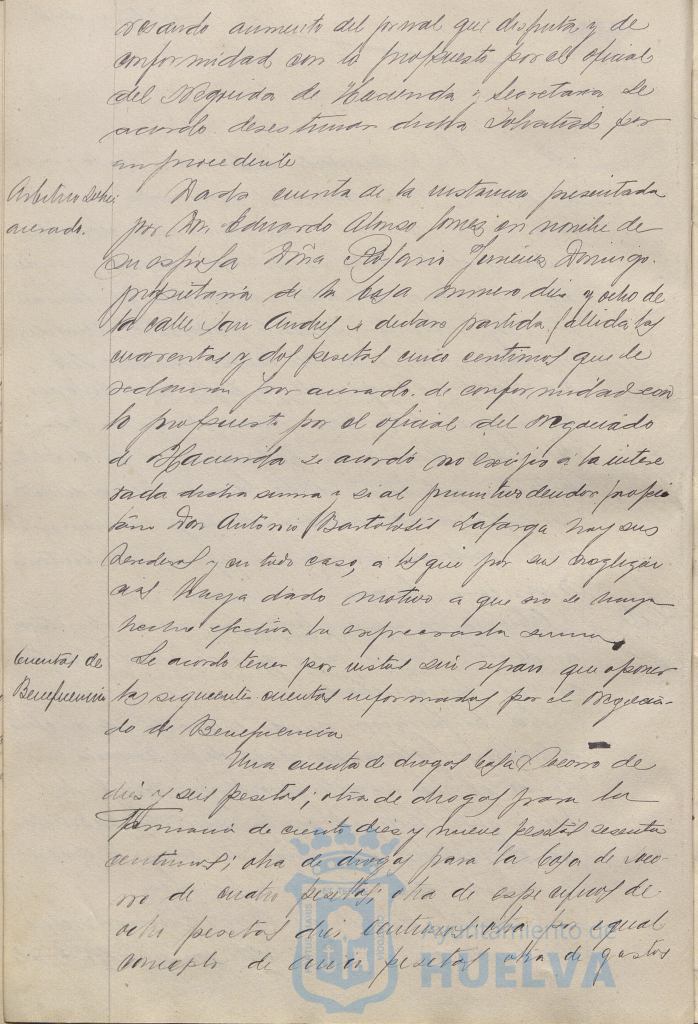 resando aumento del jornal que disfruta y de
conformidad con lo propuesto por el oficial
del Negociado de Hacienda y Secretaria se
acordo desestimar dicha solicitud por
improcedente
Arbitrio sobre
acerado.
Dada cuenta de la instancia presentada
por Don Eduardo Alonso Gomez en nombre de
su esposa Doña Rosario Jimenez Domingo
propietaria de la casa numero diez y ocho de
la calle San Andres se declare partida fallida las
cuarentas y dos pesetas cinco centimos que le
reclaman por acerado. de conformidad con
lo propuesto por el oficial del Negociado
de Hacienda se acordó no exigir a la intere
sada dicha suma y si al primitivo deudor propie
tario Don Antonio Lafarga hoy sus
herederos y en todo caso, a los que por su negligen-
cias haya dado motivo a que no se haya
hecho efectiva la expresada suma
Cuentas de
Beneficencia
Se acordo tener por vistas sin reparo que oponer
las siguientes cuentas informadas por el Negocia-
do de Beneficencia
Una cuenta de drogas Casa Socorro de
diez y seis pesetas; otra de drogas para la
Farmacia de ciento diez y nueve pesetas sesenta
centimos; otra de drogas para la Casa de Soco-
rro de cuatro pesetas; otra de especificos de
ocho pesetas diez centimos otra por igual
concepto de cinco pesetas otra de gastos
Ayuntamiento de
HUELVA